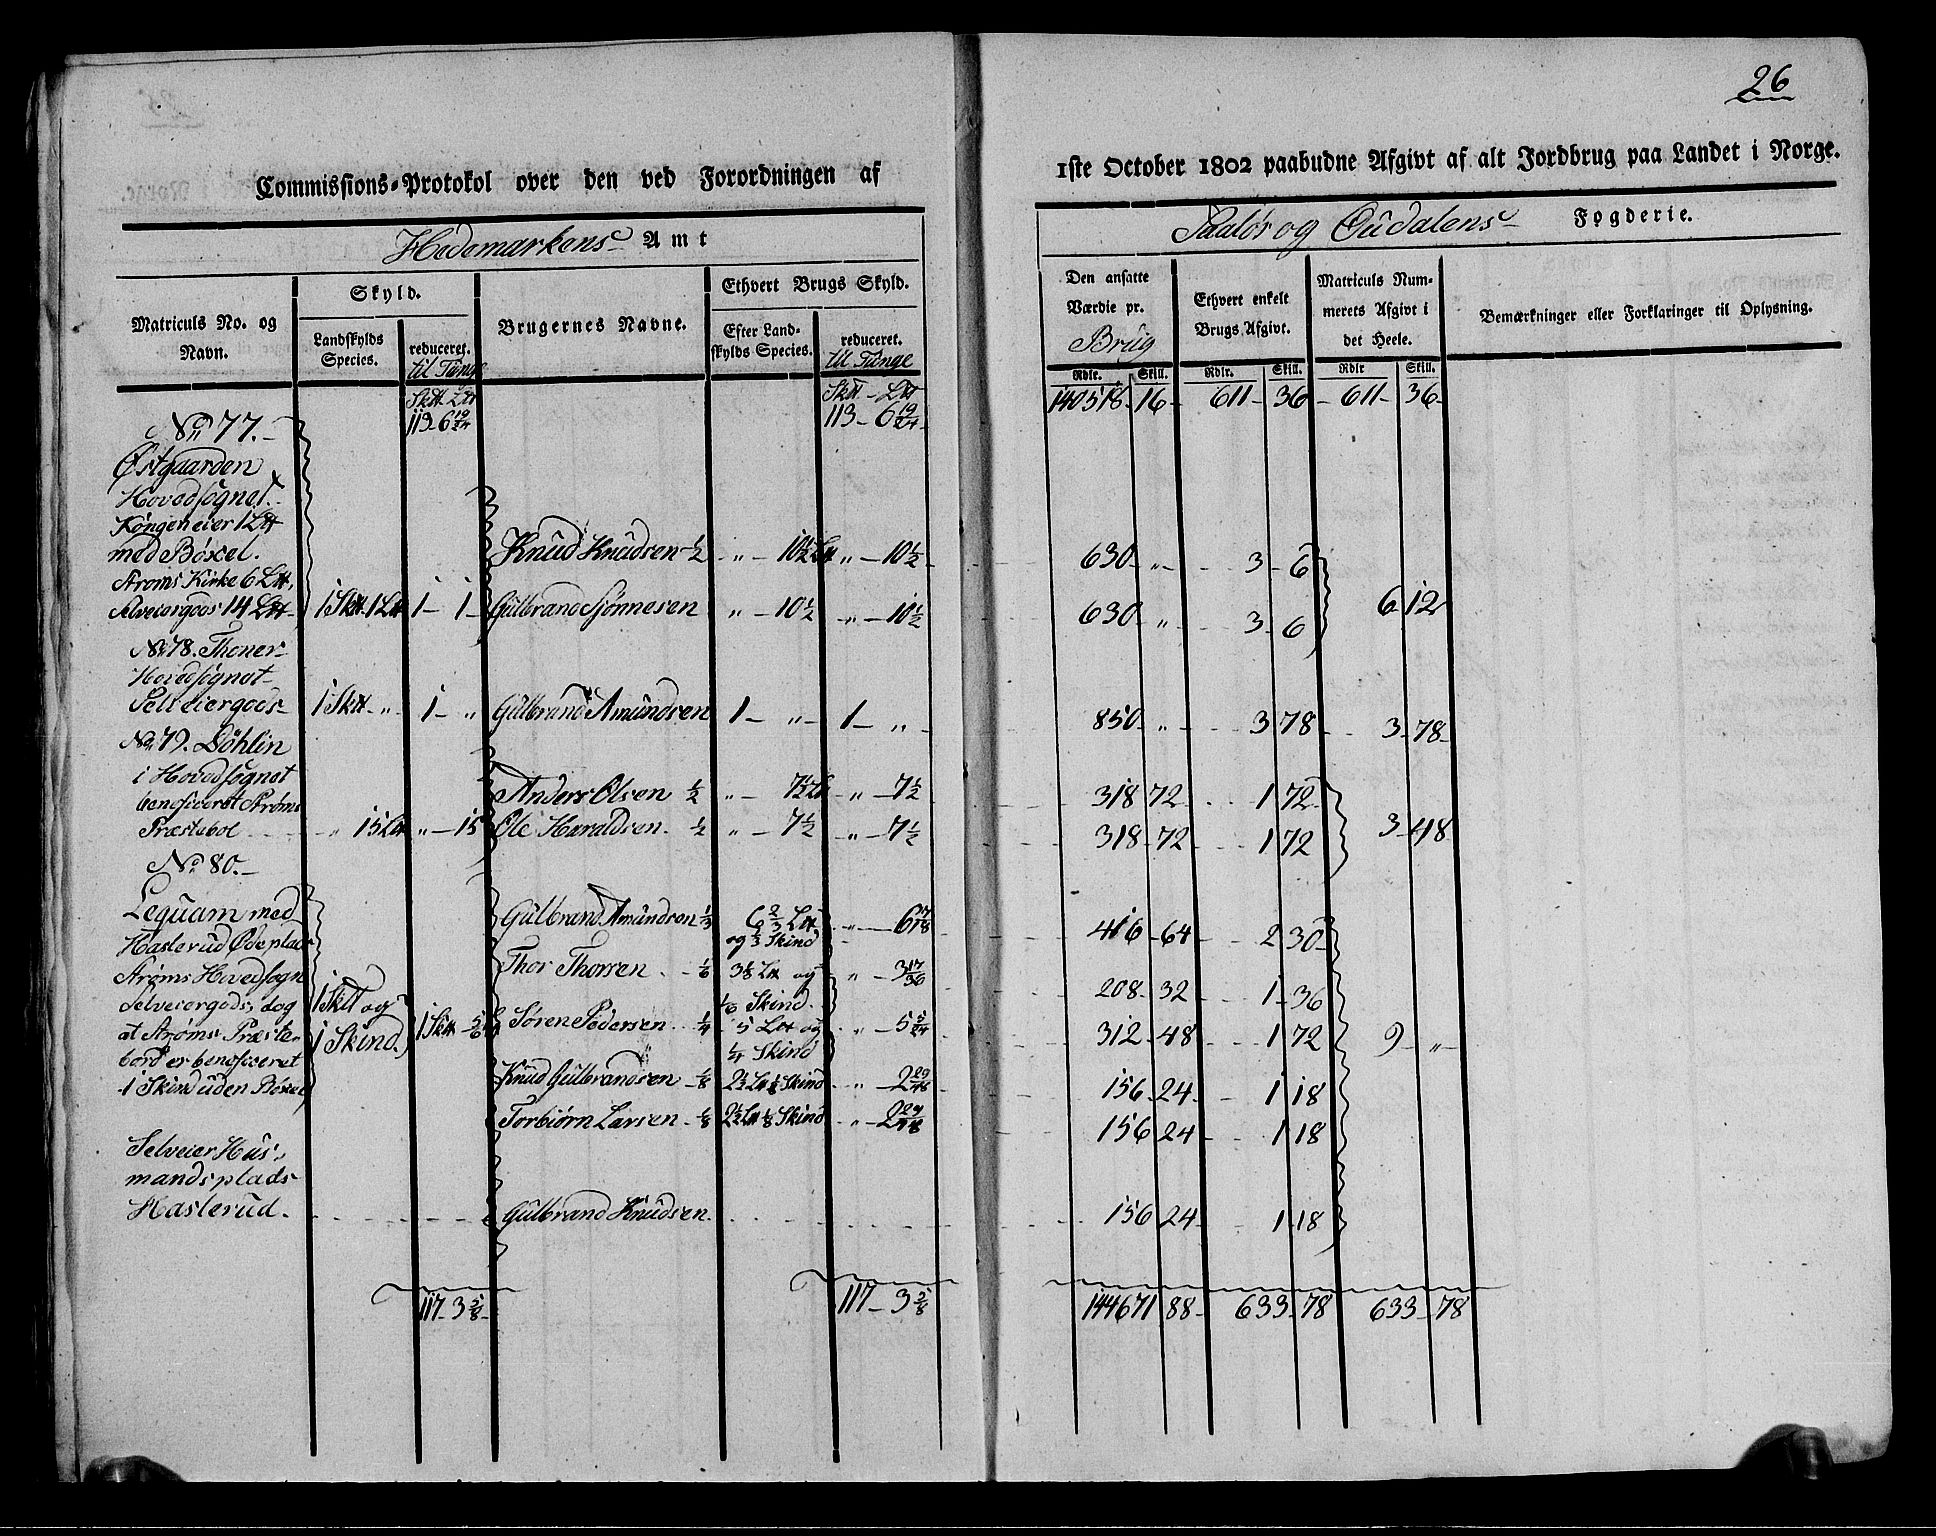 26
Commissions-Protokol over den ved Forordningen af 1ste October 1802 paabudne Afgivt af alt Jordbrug paa Landet i Norge.
Hedemarkens Amt
Soløer og Oudalens Fogderie.
Matriculs No. og Navn.
Skyld.
Landskylds Species.
reduceret. til Tunge
Brugernes Navne.
Ethvert Brugs Skyld.
Efter Landskylds Species.
reduceret. til Tunge
Den ansatte Værdie pr. Brug
Ethvert enkelt Brugs Afgivt.
Matriculs Nummerets Afgivt i det Heele.
Bemærkninger eller Forklaringer til Oplysning.
Rdlr. Skill. Rdlr. Skill. Rdlr Skill.
Sktt - Ltt Sktt - Ltt
113 - 6 19/24 113 - 6 19/24 140518 - 16 - 611 - 36 - 611 - 36 -
No 77. -
Østgaarden
Hovedsognet. -
Kongen eier 1 Ltt
med Böxel. Knud Knudsen - 1/2 " - 10 1/2 Ltt " - 10 1/2 630 - " - 3 - 6
Strøms Kirke 6 Ltt,
Selveiergods 14 Ltt - 1 Sktt 1 Ltt 1 - 1 - Gulbrand Sjønnesen " - 10 1/2 - " - 10 1/2 630 " 3 - 6 6 12
No 78. Thoner -
Hovedsognet -
Selveiergods - 1 Sktt - " - 1 - " Gulbrand Amundsen 1 - " - 1 - " - 850 - " - 3 78 - 3 - 78 -
No 79. Döhlin
i Hovedsognet
beneficeret Strøms Anders Olsen 1/2 " - 7 1/2 Ltt " - 7 1/2 318 72 1 72
Præstebol " 15 Ltt " - 15 Ole Haraldsen. - 1/2 " - 7 1/2 - " - 7 1/2 318 - 72 1 72 3 - 48
No 80. -
Lequam med Gulbrand Amundsen 1/3 6 2/3 Ltt og 1/3 Skind - " - 6 17/18 416 - 64 - 2 30 -
Haslerud Ødeplads
Strøms Hovedsogn Thor Thorsen. - 1/6 3 1/3 Ltt og 1/6 Skind. " - 3 17/36 208 - 32 1 - 36
Selveiergods, dog 1 Sktt og
at Strøms Præste- 1 Skind. 1 Sktt - 5/6 Søren Pedersen. - 1/4 5 Ltt og 1/4 Skind " - 5 5/24 312 - 48 - 1 72 9 - " -
bord er beneficeret
1 Skind uden Böxel Knud Gulbrandsen - 1/8 2 1/2 Ltt 1/8 Skind " - 2 29/48 156 - 24 - 1 18
Torbiørn Larsen - 1/8 2 1/2 Ltt 1/8 Skind - " - 2 29/48 156 24 - 1 18
Selveier Hus-
mandsplads
Haslerud. Gulbrand Knudsen. 156 24 - 1 - 18
117 - 3 5/8 - 117 - 3 5/8 144671 88 - 633 - 78 633 - 78